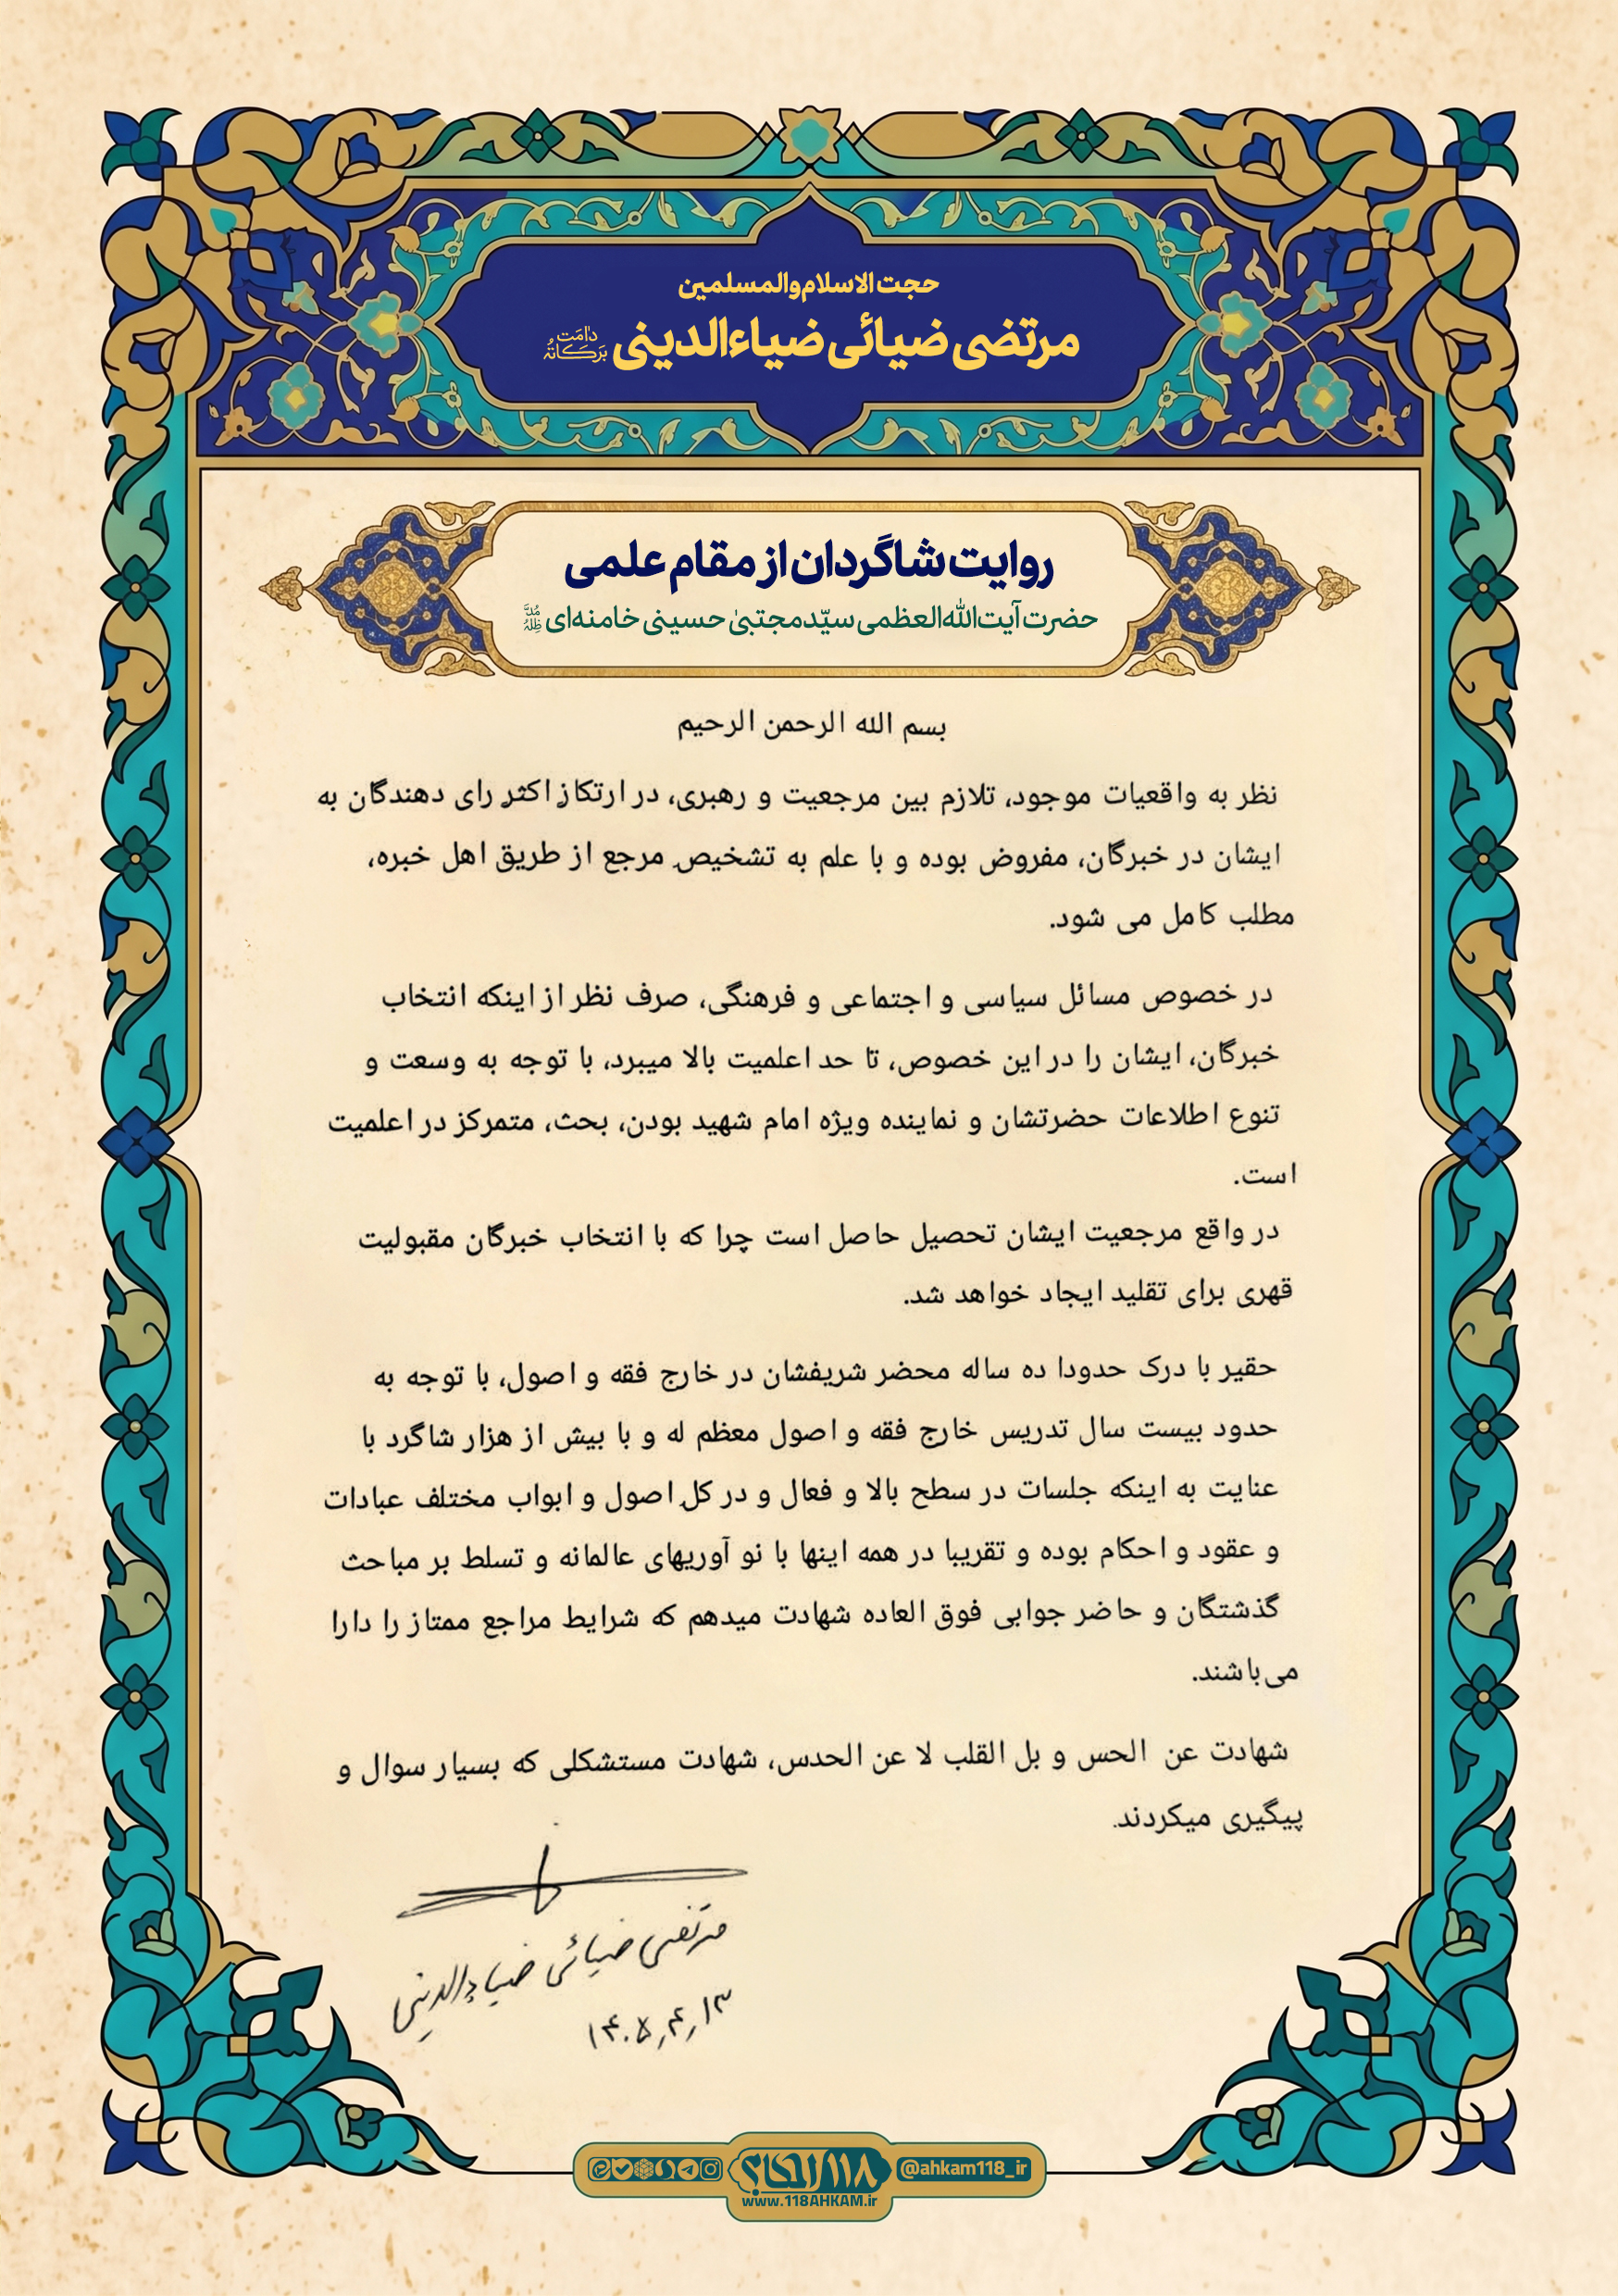 حجت الاسلام والمسلمین
مرتضی ضیائی ضیاءالدینی دامَت بَرَکاتُهُ
روایت شاگردان از مقام علمی
حضرت آیت‌الله‌العظمی سیّدمجتبیٰ حسینی خامنه‌ای مُدَّ ظِلُّهُ
بسم الله الرحمن الرحیم
نظر به واقعیات موجود، تلازم بین مرجعیت و رهبری، در ارتکاز اکثر رای دهندگان به
ایشان در خبرگان، مفروض بوده و با علم به تشخیص مرجع از طریق اهل خبره،
مطلب کامل می شود.
در خصوص مسائل سیاسی و اجتماعی و فرهنگی، صرف نظر از اینکه انتخاب
خبرگان، ایشان را در این خصوص، تا حد اعلمیت بالا میبرد، با توجه به وسعت و
تنوع اطلاعات حضرتشان و نماینده ویژه امام شهید بودن، بحث، متمرکز در اعلمیت
است.
در واقع مرجعیت ایشان تحصیل حاصل است چرا که با انتخاب خبرگان مقبولیت
قهری برای تقلید ایجاد خواهد شد.
حقیر با درک حدودا ده ساله محضر شریفشان در خارج فقه و اصول، با توجه به
حدود بیست سال تدریس خارج فقه و اصول معظم له و با بیش از هزار شاگرد با
عنایت به اینکه جلسات در سطح بالا و فعال و در کل اصول و ابواب مختلف عبادات
و عقود و احکام بوده و تقریبا در همه اینها با نو آوریهای عالمانه و تسلط بر مباحث
گذشتگان و حاضر جوابی فوق العاده شهادت میدهم که شرایط مراجع ممتاز را دارا
می‌باشند.
شهادت عن الحس و بل القلب لا عن الحدس، شهادت مستشکلی که بسیار سوال و
پیگیری میکردند.
مرتضی ضیائی ضیاءالدینی
۱۴۰۵,۴,۱۳
۱۱۸ احکام
@ahkam118_ir
www.118AHKAM.ir